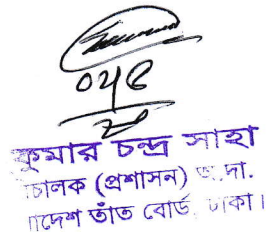 কুমার চন্দ্র সাহা
চালক (প্রশাসন) অ.দা.
াদেশ তাঁত বোর্ড, ঢাকা।